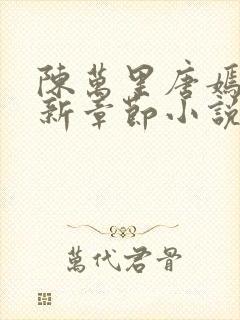 陳萬里唐嫣
新章節小說
萬代君骨